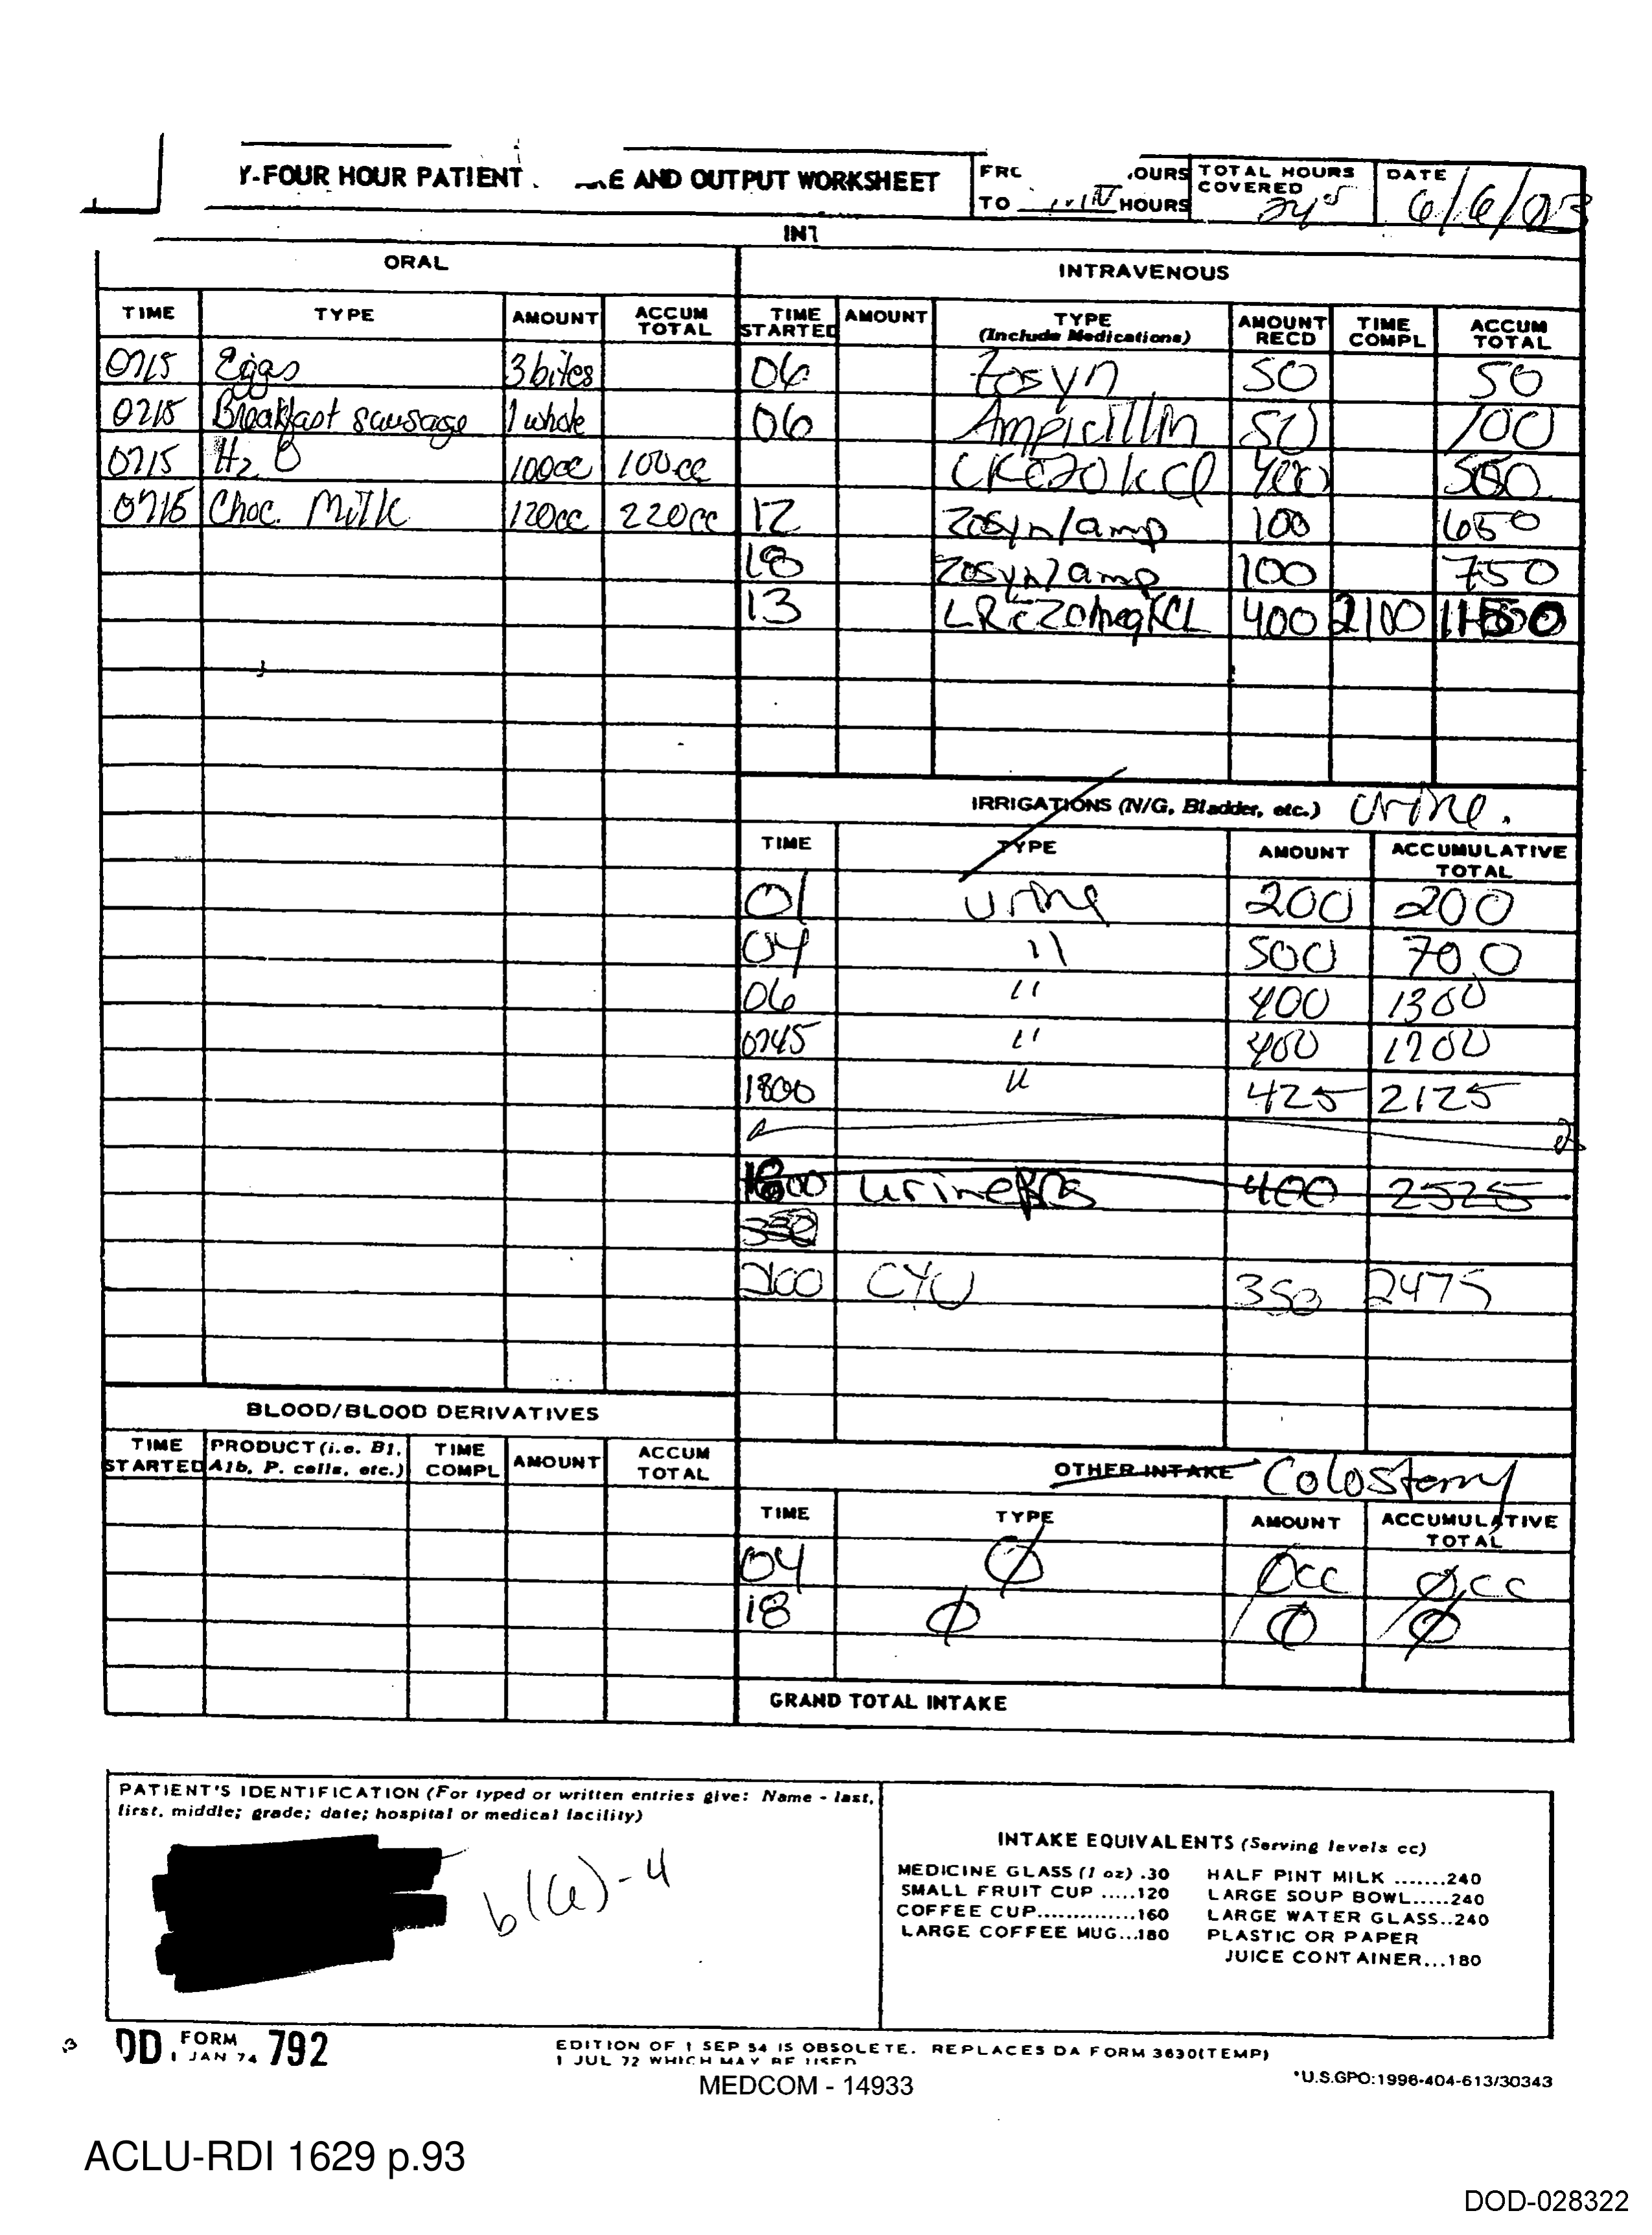 Y-FOUR HOUR PATIENT E AND OUTPUT WORKSHEET
FRO OURS
TO HOURS
TOTAL HOURS COVERED 24
DATE 6/6/03
INT
ORAL
INTRAVENOUS
TIME TYPE AMOUNT ACCUM TOTAL
TIME STARTED AMOUNT TYPE (Include Medications) AMOUNT RECD TIME COMPL ACCUM TOTAL
0715 Eggs 3 bites 06 Zosyn 50 50
0715 Breakfast sausage 1 whole 06 Ampicillin 50 100
0715 H2O 100cc 100cc 400
0715 Choc. Milk 120cc 220cc 12 Zosyn/amp 100 650
18 Zosyn/amp 100 750
13 LR c̄ 20meq KCL 400 2100
IRRIGATIONS (N/G, Bladder, etc.) Urine.
TIME TYPE AMOUNT ACCUMULATIVE TOTAL
01 urine 200 200
04 " 500 700
06 " 400 1300
0745 " 400 1700
1800 " 425 2125
urine 400 2525
CYU 350 2475
BLOOD/BLOOD DERIVATIVES
TIME STARTED PRODUCT (i.e. Bl, Alb, P. cells, etc.) TIME COMPL AMOUNT ACCUM TOTAL
OTHER INTAKE Colostomy
TIME TYPE AMOUNT ACCUMULATIVE TOTAL
04 Ø Øcc Øcc
18 Ø Ø Ø
GRAND TOTAL INTAKE
PATIENT'S IDENTIFICATION (For typed or written entries give: Name - last,
first, middle; grade; date; hospital or medical facility)
b(6)-4
INTAKE EQUIVALENTS (Serving levels cc)
MEDICINE GLASS (1 oz) .30 HALF PINT MILK .......240
SMALL FRUIT CUP .....120 LARGE SOUP BOWL.....240
COFFEE CUP..............160 LARGE WATER GLASS..240
LARGE COFFEE MUG...180 PLASTIC OR PAPER
JUICE CONTAINER...180
DD FORM 1 JAN 74 792
EDITION OF 1 SEP 54 IS OBSOLETE. REPLACES DA FORM 3630(TEMP)
1 JUL 72 WHICH MAY BE USED
*U.S.GPO:1996-404-613/30343
MEDCOM - 14933
ACLU-RDI 1629 p.93
DOD-028322